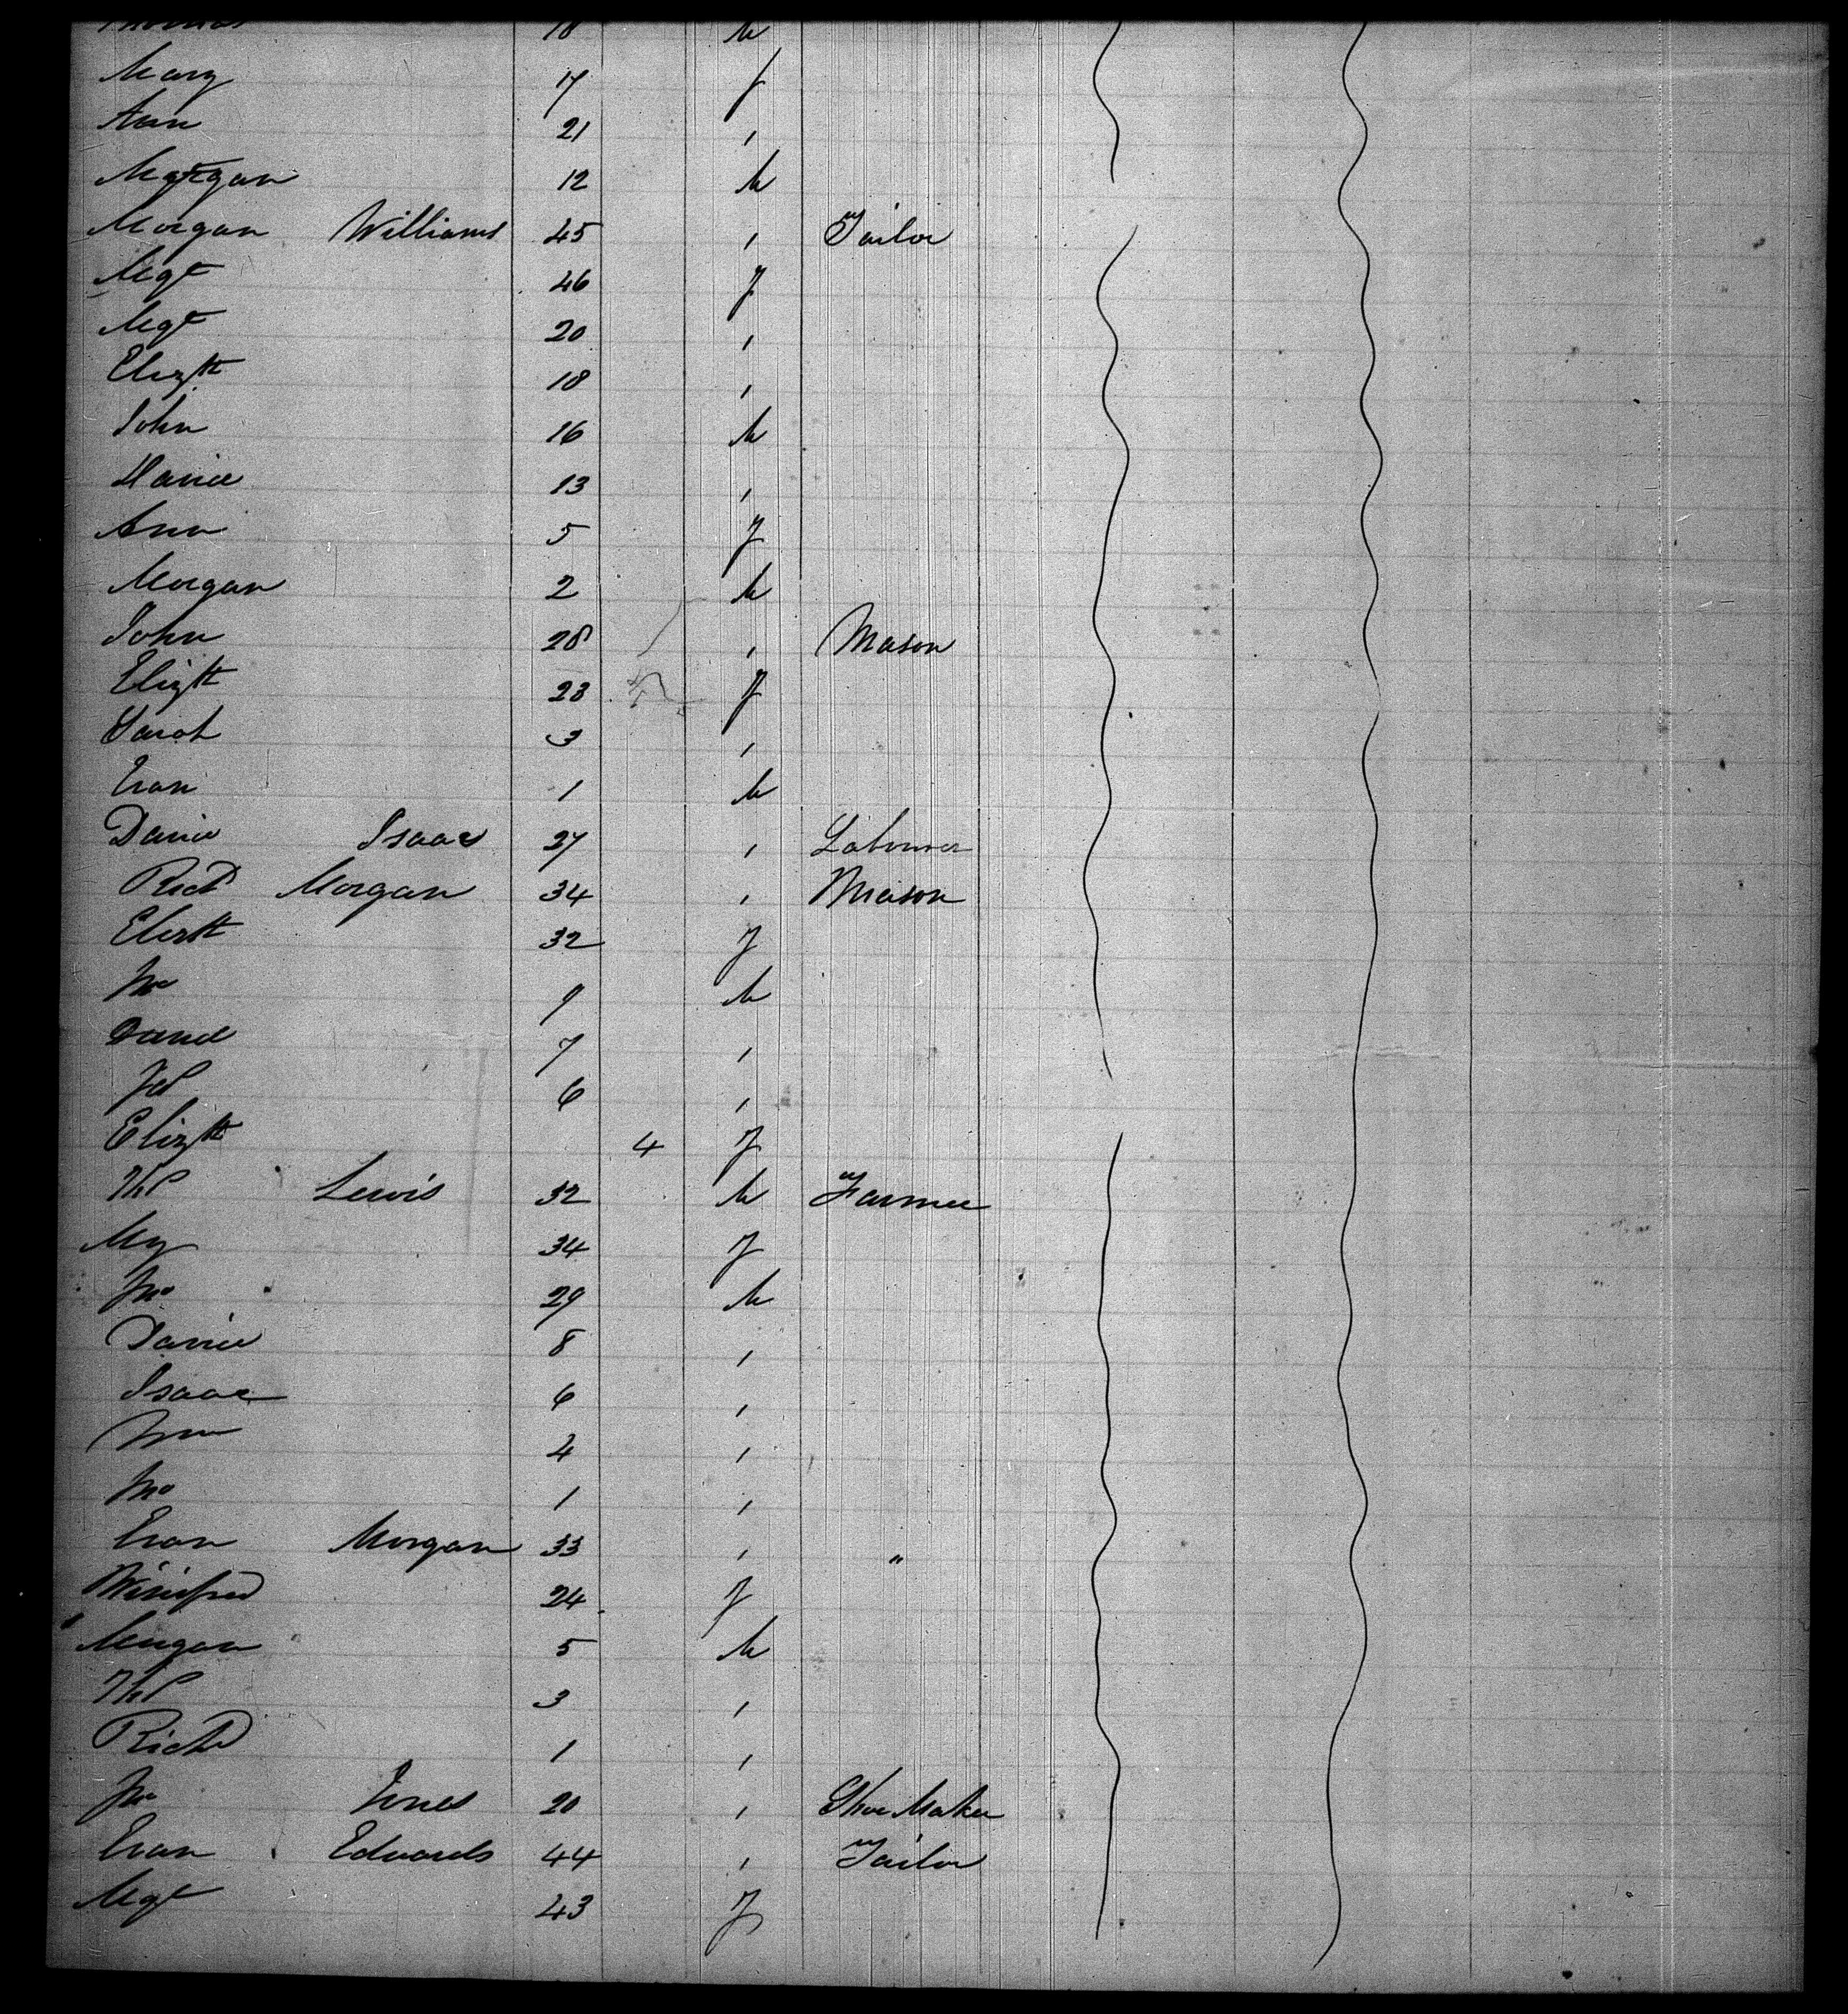 Thomas 18 M
Mary 17 f
Ann 21 "
Morgan 12 M
Morgan Williams 45 " Tailor
Mgt 46 f
Mgt 20 "
Elizth 18 "
John 16 M
David 13 "
Ann 5 f
Morgan 2 M
John 28 " Mason
Elizth 23 f
Sarah 3 "
Evan 1 M
David Isaac 27 " Labourer
Richd Morgan 34 " Mason
Elizth 32 f
Jno 9 M
David 7 "
6 "
Elizth 4 f
Ths Lewis 32 M Farmer
My 34 f
Jno 29 M
David 8 "
Isaac 6 "
Wm 4 "
Jno 1 "
Evan Morgan 33 " "
Winifred 24 f
Morgan 5 M
Ths 3 "
Richd 1 "
Jno Jones 20 " Shoe Maker
Evan Edwards 44 " Tailor
Mgt 43 f